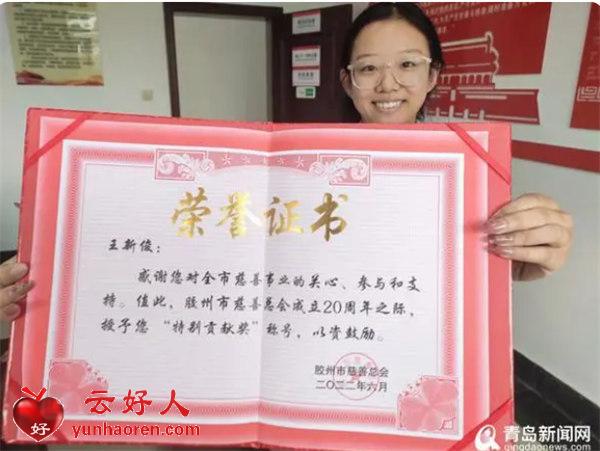 荣誉证书
王新俊：
感谢您对全市慈善事业的关心、参与和支
持。值此，胶州市慈善总会成立20周年之际，
授予您“特别贡献奖”称号，以资鼓励。
胶州市慈善总会
二〇二二年六月
好
云好人
yunhaoren.com
青岛新闻网
qingdaonews.com